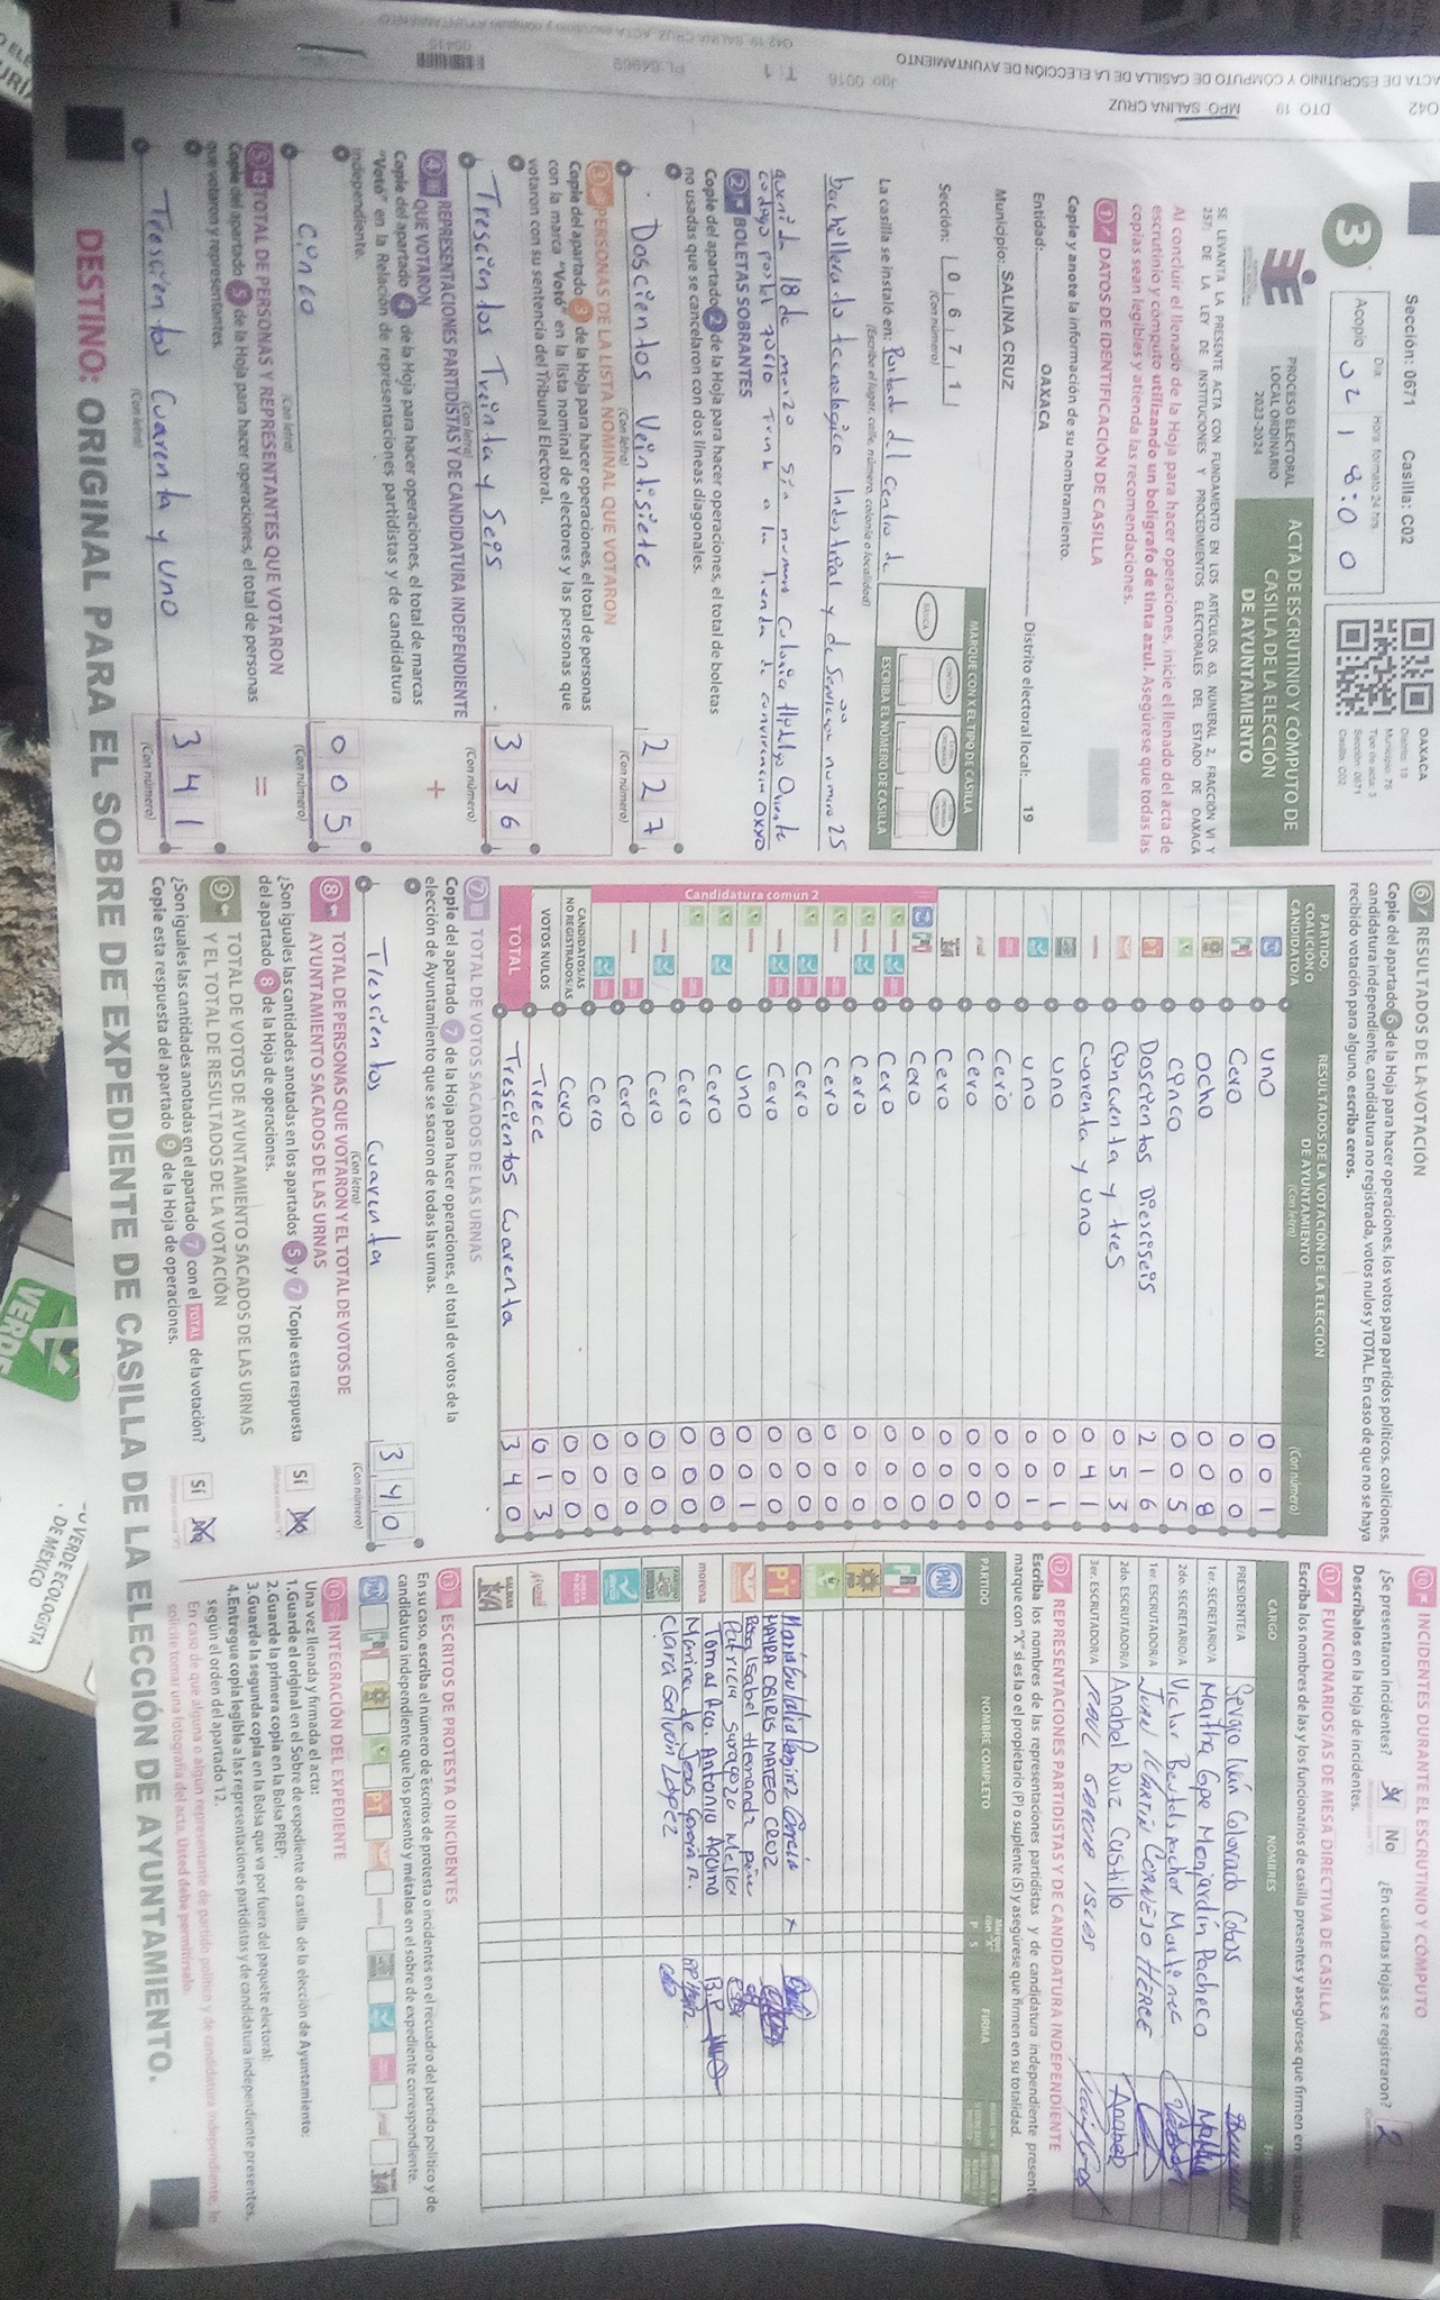 ACTA DE ESCRUTINIO Y CÓMPUTO DE CASILLA DE LA ELECCIÓN DE AYUNTAMIENTO
DTO 19 MPO SALINA CRUZ
Sección: 0671 Casilla: C02
OAXACA
Sección: 0671
Casilla: C02
3
Día Hora formato 24 hrs.
Acopio 02 18:00
PROCESO ELECTORAL
LOCAL ORDINARIO
2023-2024
ACTA DE ESCRUTINIO Y CÓMPUTO DE
CASILLA DE LA ELECCIÓN
DE AYUNTAMIENTO
SE LEVANTA LA PRESENTE ACTA CON FUNDAMENTO EN LOS ARTÍCULOS 63, NUMERAL 2, FRACCIÓN VI Y
257; DE LA LEY DE INSTITUCIONES Y PROCEDIMIENTOS ELECTORALES DEL ESTADO DE OAXACA
Al concluir el llenado de la Hoja para hacer operaciones, inicie el llenado del acta de
escrutinio y cómputo utilizando un bolígrafo de tinta azul. Asegúrese que todas las
copias sean legibles y atienda las recomendaciones.
1 DATOS DE IDENTIFICACIÓN DE CASILLA
Copie y anote la información de su nombramiento.
Entidad: OAXACA Distrito electoral local: 19
Municipio: SALINA CRUZ
Sección: 0671
(Con número)
MARQUE CON X EL TIPO DE CASILLA
ESCRIBA EL NÚMERO DE CASILLA
La casilla se instaló en: Portada del Centro de
(Escriba el lugar, calle, número, colonia o localidad)
bachillerato tecnologico Industrial y de Servicios numero 25
avenida 18 de marzo sin numero Colonia Hidalgo Oriente
2 BOLETAS SOBRANTES
Copie del apartado 2 de la Hoja para hacer operaciones, el total de boletas
no usadas que se cancelaron con dos líneas diagonales.
Doscientos Veintisiete 227
(Con letra) (Con número)
3 PERSONAS DE LA LISTA NOMINAL QUE VOTARON
Copie del apartado 3 de la Hoja para hacer operaciones, el total de personas
con la marca "Votó" en la lista nominal de electores y las personas que
votaron con su sentencia del Tribunal Electoral.
Trescientos Treinta y Seis 336
(Con letra) (Con número)
4 REPRESENTACIONES PARTIDISTAS Y DE CANDIDATURA INDEPENDIENTE
QUE VOTARON +
Copie del apartado 4 de la Hoja para hacer operaciones, el total de marcas
"Votó" en la Relación de representaciones partidistas y de candidatura
independiente.
Cinco 005
(Con letra) (Con número)
5 TOTAL DE PERSONAS Y REPRESENTANTES QUE VOTARON =
Copie del apartado 5 de la Hoja para hacer operaciones, el total de personas
que votaron y representantes.
Trescientos Cuarenta y Uno 341
(Con letra) (Con número)
6 RESULTADOS DE LA VOTACIÓN
Copie del apartado 6 de la Hoja para hacer operaciones, los votos para partidos políticos, coaliciones,
candidatura independiente, candidatura no registrada, votos nulos y TOTAL. En caso de que no se haya
recibido votación para alguno, escriba ceros.
PARTIDO, COALICIÓN O CANDIDATO/A
RESULTADOS DE LA VOTACIÓN DE LA ELECCIÓN DE AYUNTAMIENTO
(Con letra) (Con número)
Uno 001
Cero 000
Ocho 008
Cinco 005
Doscientos Dieseiseis 216
Cincuenta y tres 053
Cuarenta y Uno 041
Uno 001
Uno 001
Cero 000
Cero 000
Cero 000
Cero 000
Candidatura común 2
Cero 000
Cero 000
Cero 000
Cero 000
Cero 000
Uno 001
Cero 000
Cero 000
Cero 000
Cero 000
Cero 000
CANDIDATOS/AS NO REGISTRADOS/AS Cero 000
VOTOS NULOS Trece 013
TOTAL Trescientos Cuarenta 340
7 TOTAL DE VOTOS SACADOS DE LAS URNAS
Copie del apartado 7 de la Hoja para hacer operaciones, el total de votos de la
elección de Ayuntamiento que se sacaron de todas las urnas.
Trescientos Cuarenta 340
(Con letra) (Con número)
8 TOTAL DE PERSONAS QUE VOTARON Y EL TOTAL DE VOTOS DE
AYUNTAMIENTO SACADOS DE LAS URNAS
¿Son iguales las cantidades anotadas en los apartados 5 y 7 ?Copie esta respuesta
del apartado 8 de la Hoja de operaciones. Sí No
9 TOTAL DE VOTOS DE AYUNTAMIENTO SACADOS DE LAS URNAS
Y EL TOTAL DE RESULTADOS DE LA VOTACIÓN
¿Son iguales las cantidades anotadas en el apartado 7 con el TOTAL de la votación?
Copie esta respuesta del apartado 9 de la Hoja de operaciones. Sí No
10 INCIDENTES DURANTE EL ESCRUTINIO Y CÓMPUTO
¿Se presentaron incidentes? Sí No ¿En cuántas Hojas se registraron? 2
Descríbalos en la Hoja de incidentes.
11 FUNCIONARIOS/AS DE MESA DIRECTIVA DE CASILLA
Escriba los nombres de las y los funcionarios de casilla presentes y asegúrese que firmen en
CARGO NOMBRES
PRESIDENTE/A Sergio Iván Colorado Cobos
1er. SECRETARIO/A Martha Gpe Monjardín Pacheco
2do. SECRETARIO/A Victor
1er. ESCRUTADOR/A JUAN MARTIN CORNEJO
2do. ESCRUTADOR/A Anabel Ruiz Castillo Anabel
3er. ESCRUTADOR/A
12 REPRESENTACIONES PARTIDISTAS Y DE CANDIDATURA INDEPENDIENTE
Escriba los nombres de las representaciones partidistas y de candidatura independiente
marque con "X" si es la o el propietario (P) o suplente (S) y asegúrese que firmen en su totalidad.
PARTIDO NOMBRE COMPLETO P S FIRMA
PAN
PRI
PT
María Eulalia Ramirez García X
MAYRA OBIRIS MATEO CRUZ
Rosa Isabel Hernandz
Patricia
Tomas Fco. Antonio Aquino
morena Marina de Jesus
Clara Galván López
13 ESCRITOS DE PROTESTA O INCIDENTES
En su caso, escriba el número de escritos de protesta o incidentes en el recuadro del partido político y de
candidatura independiente que los presentó y métalos en el sobre de expediente correspondiente.
14 INTEGRACIÓN DEL EXPEDIENTE
Una vez llenada y firmada el acta:
1.Guarde el original en el Sobre de expediente de casilla de la elección de Ayuntamiento:
2.Guarde la primera copia en la Bolsa PREP:
3.Guarde la segunda copia en la Bolsa que va por fuera del paquete electoral:
4.Entregue copia legible a las representaciones partidistas y de candidatura independiente presentes,
según el orden del apartado 12.
En caso de que alguna o algún representante de partido político y de candidatura independiente, lo
solicite tomar una fotografía del acta, Usted debe permitírselo.
DESTINO: ORIGINAL PARA EL SOBRE DE EXPEDIENTE DE CASILLA DE LA ELECCIÓN DE AYUNTAMIENTO.
VERDE
VERDE ECOLOGISTA
DE MÉXICO